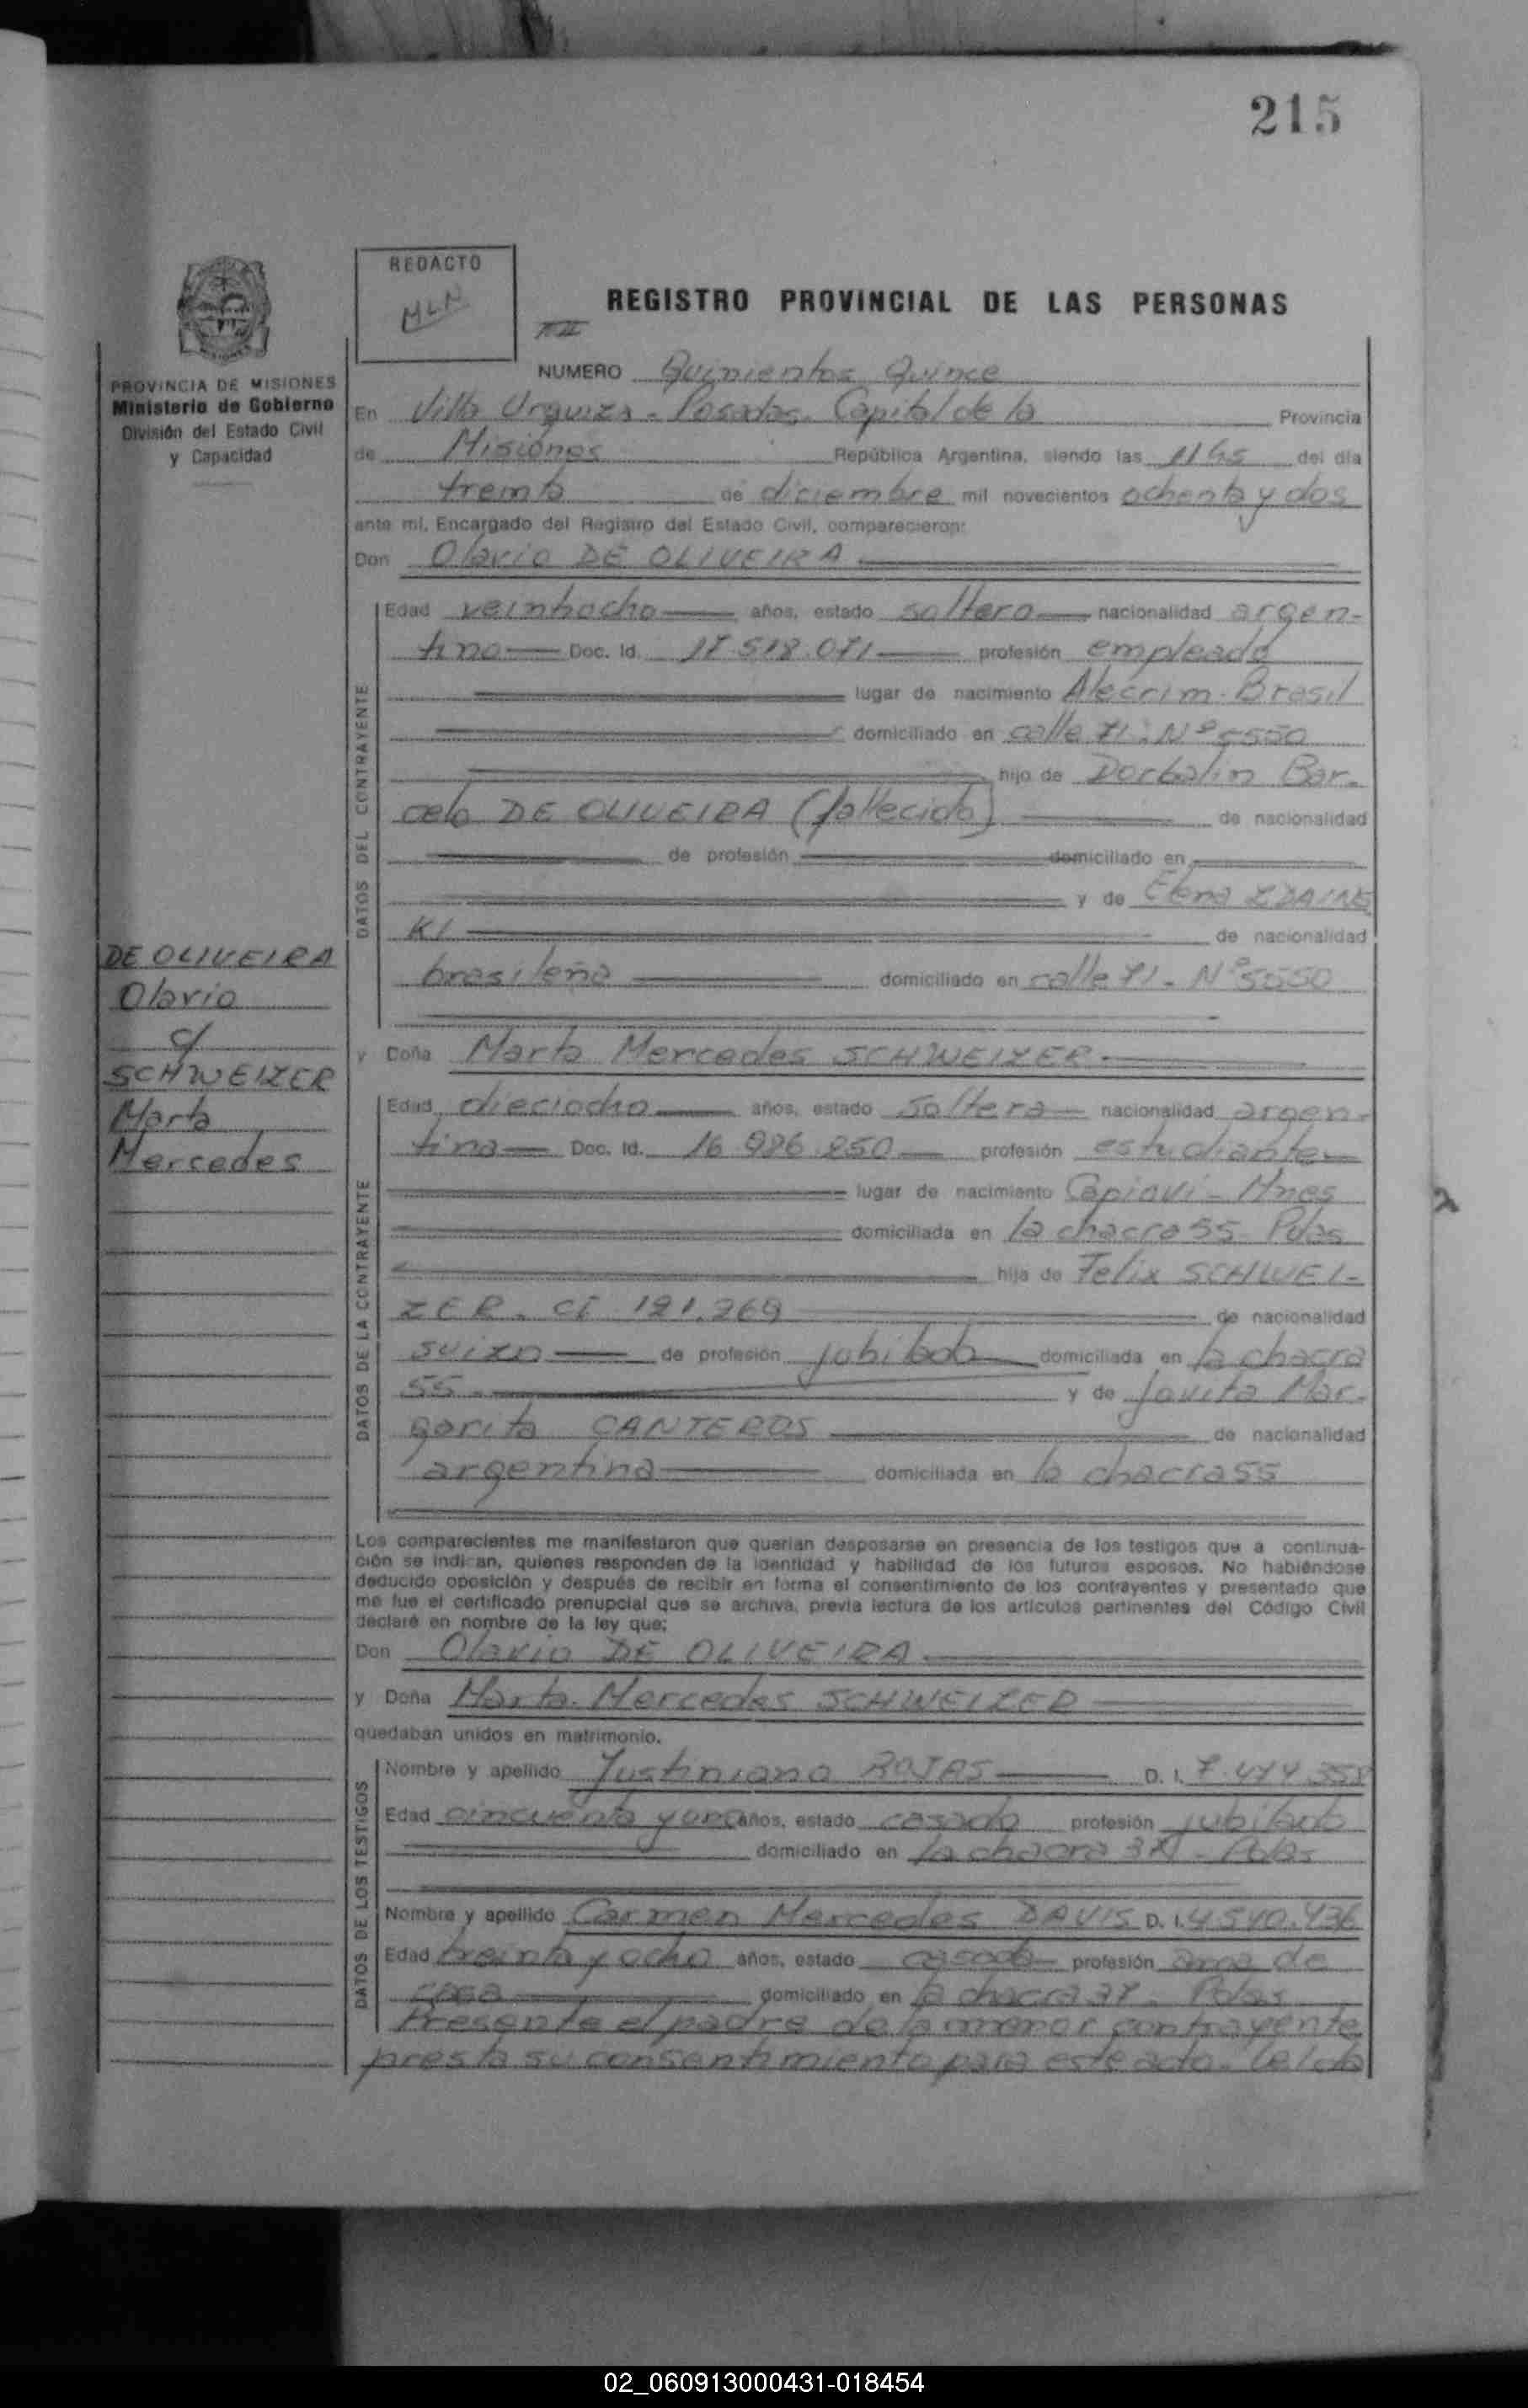 215
REDACTO
MLN
REGISTRO PROVINCIAL DE LAS PERSONAS
PROVINCIA DE MISIONES
Ministerio de Gobierno
División del Estado Civil
y Capacidad
NUMERO Quinientos Quince
En Villa Urquiza - Posadas. Capital de la Provincia
de Misiones República Argentina, siendo las 11 hs del día
treinta de diciembre mil novecientos ochenta y dos
ante mí, Encargado del Registro del Estado Civil, comparecieron:
Don Olavio DE OLIVEIRA
DATOS DEL CONTRAYENTE
Edad veintiocho años, estado soltero nacionalidad argen-
tino Doc. Id. profesión empleado
lugar de nacimiento Alecrim - Brasil
domiciliado en calle 71 - Nº 5550
hijo de Dorbalin Bar-
celo DE OLIVEIRA (fallecido) de nacionalidad
de profesión domiciliado en
y de Elena ZDAINS
KI de nacionalidad
brasileña domiciliado en calle 71 - Nº 5550
DE OLIVEIRA
Olavio
c/
SCHWEIZER
Marta
Mercedes
y Doña Marta Mercedes SCHWEIZER
DATOS DE LA CONTRAYENTE
Edad dieciocho años, estado soltera nacionalidad argen-
tina Doc. Id. profesión estudiante
lugar de nacimiento Capioví - Mnes
domiciliada en la chacra 55 - Pdas
hija de Felix SCHWEI-
ZER - CI 121.269 de nacionalidad
suizo de profesión jubilado domiciliada en la chacra
55 - y de Jovita Mar-
garita CANTEROS de nacionalidad
argentina domiciliada en la chacra 55
Los comparecientes me manifestaron que querían desposarse en presencia de los testigos que a continua-
ción se indican, quienes responden de la identidad y habilidad de los futuros esposos. No habiéndose
deducido oposición y después de recibir en forma el consentimiento de los contrayentes y presentado que
me fue el certificado prenupcial que se archiva, previa lectura de los artículos pertinentes del Código Civil
declaré en nombre de la ley que:
Don Olavio DE OLIVEIRA
y Doña Marta Mercedes SCHWEIZER
quedaban unidos en matrimonio.
DATOS DE LOS TESTIGOS
Nombre y apellido Justiniano ROJAS D. I.
Edad cincuenta y un años, estado casado profesión jubilado
domiciliado en la chacra - Pdas
Nombre y apellido Carmen Mercedes DAVIS D. I. 4.540.436
Edad treinta y ocho años, estado casada profesión ama de
casa domiciliado en la chacra 37 - Pdas
Presente el padre de la menor contrayente
presta su consentimiento para este acto. Leída
02_060913000431-018454